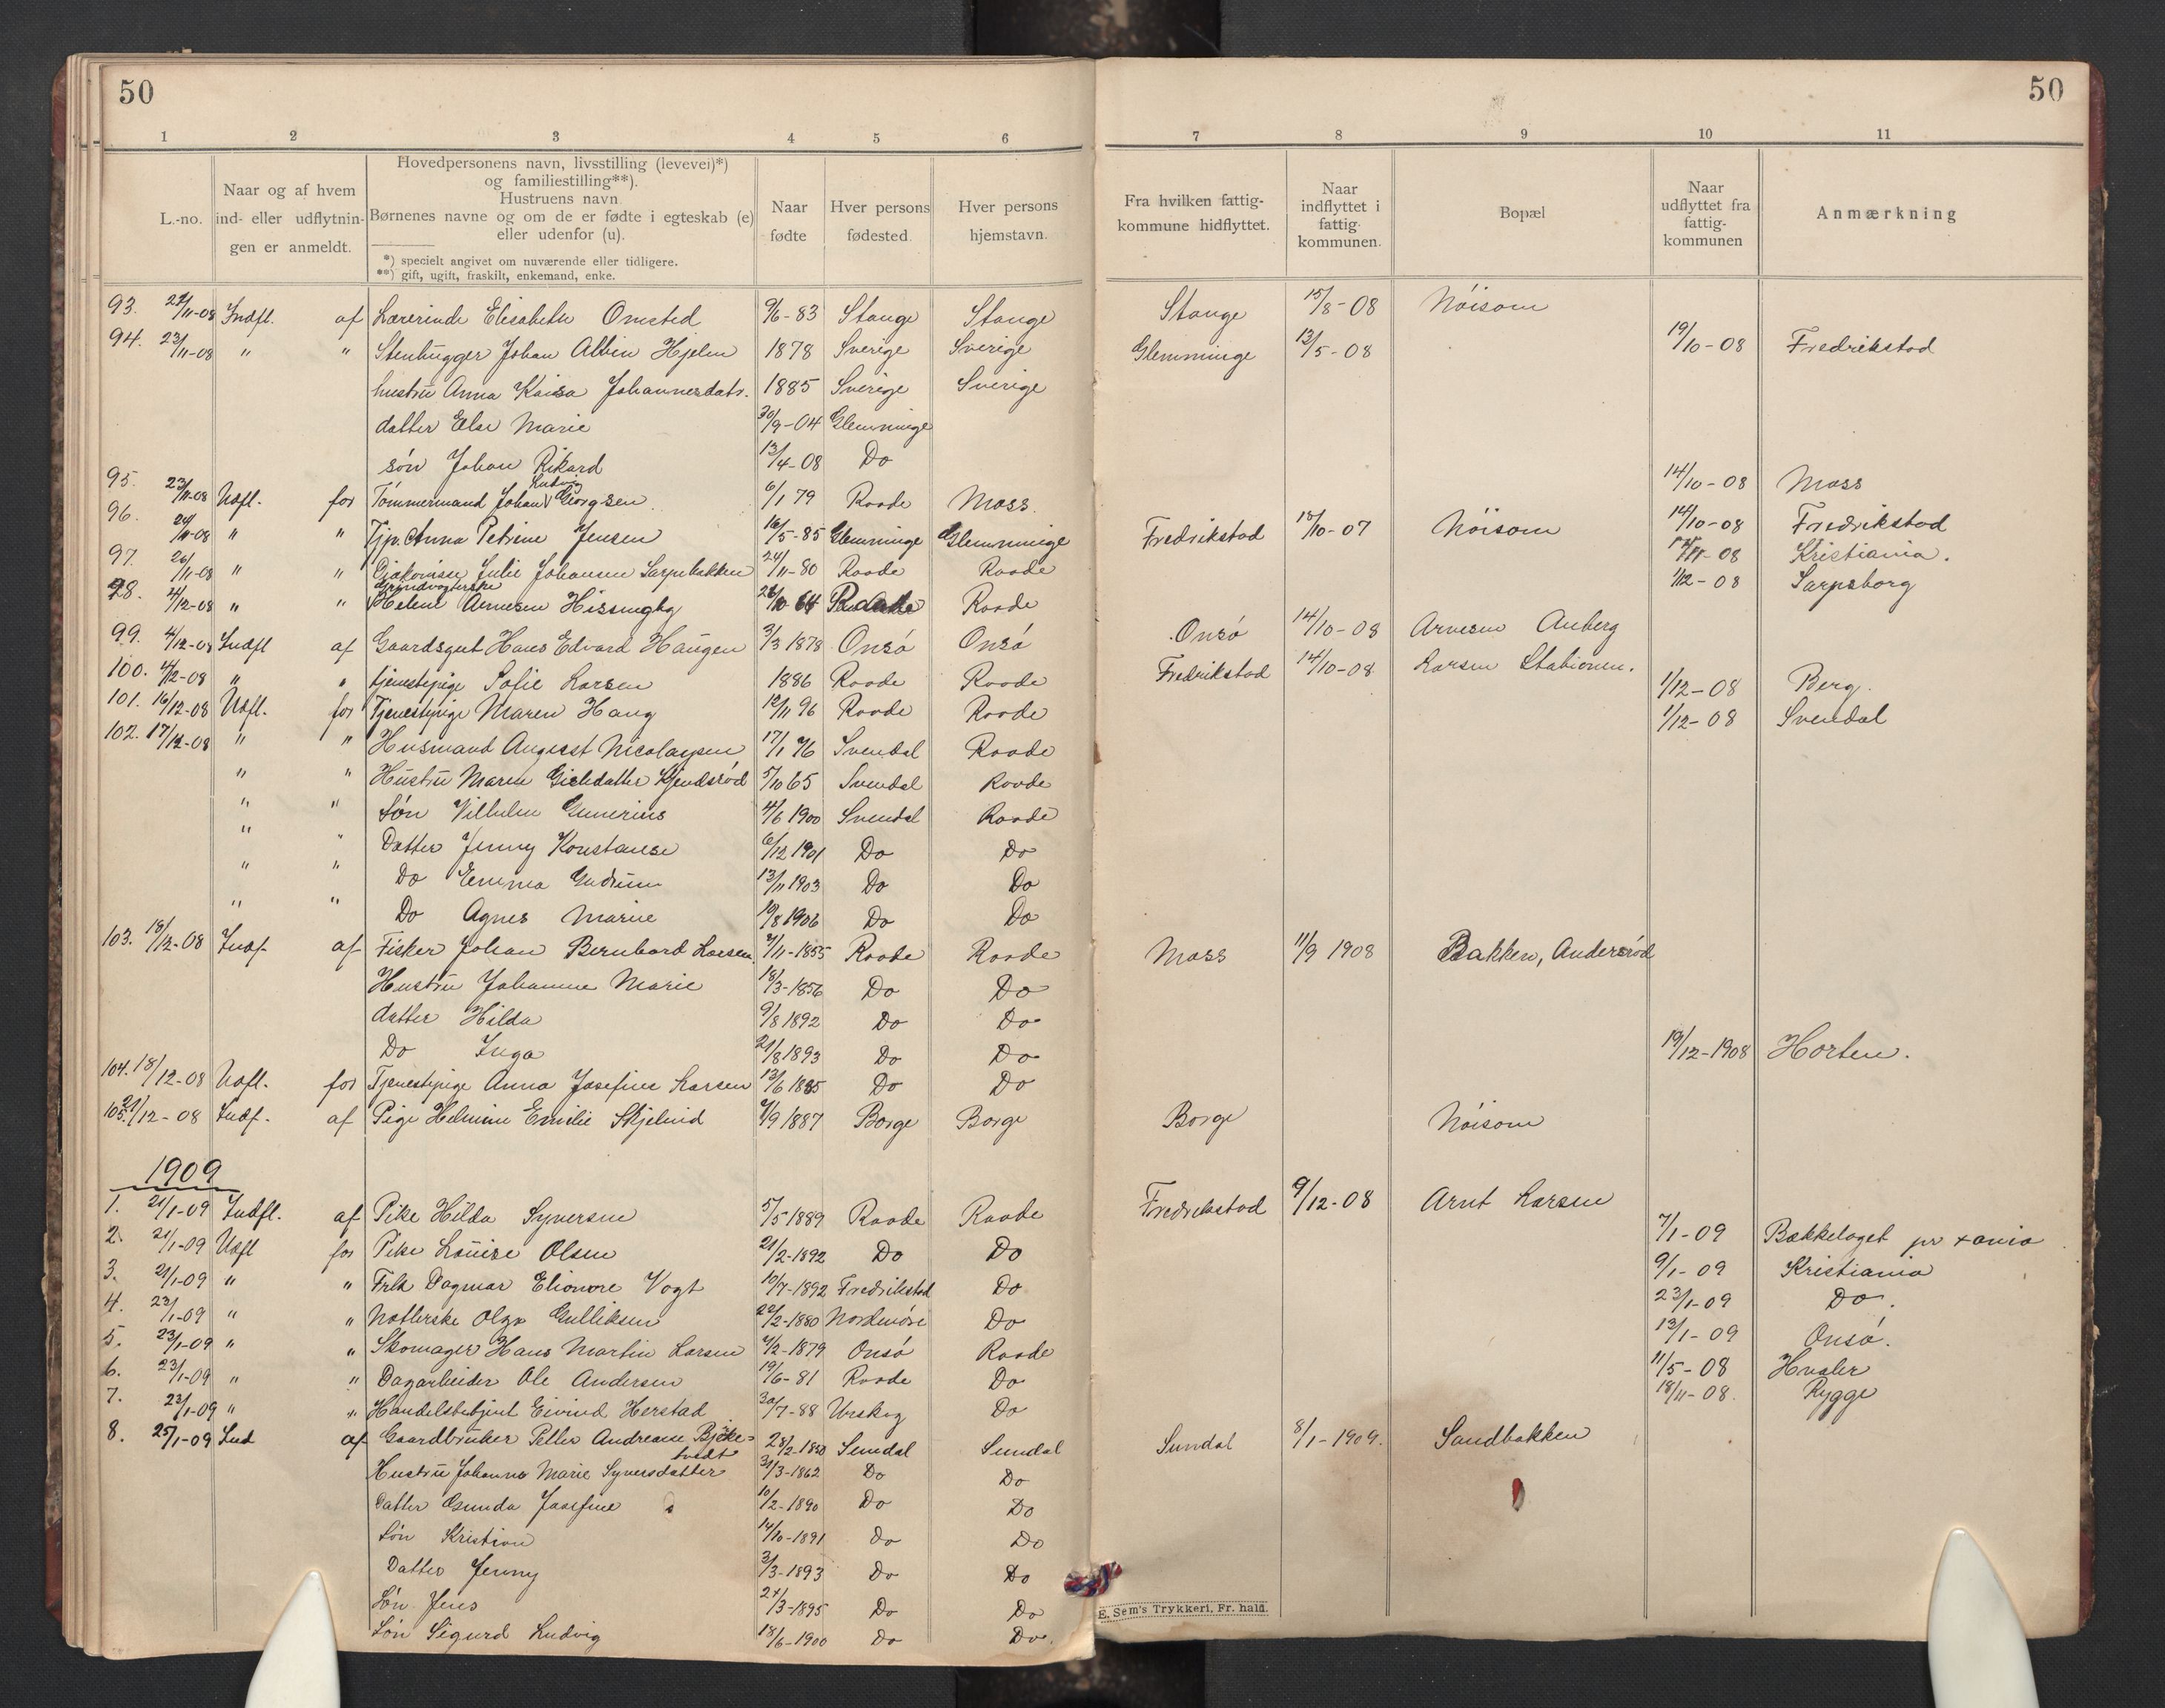 50 50
1 2 3 4 5 6 7 8 9 10 11
L.-no.
Naar og af hvem
ind- eller udflytnin-
gen er anmeldt.
Hovedpersonens navn, livsstilling (levevei)*)
og familiestilling**).
Hustruens navn
Børnenes navne og om de er fødte i egteskab (e)
eller udenfor (u).
*) specielt angivet om nuværende eller tidligere.
**) gift, ugift, fraskilt, enkemand, enke.
Naar
fødte
Hver persons
fødested.
Hver persons
hjemstavn.
Fra hvilken fattig-
kommune hidflyttet.
Naar
indflyttet i
fattig-
kommunen.
Bopæl
Naar
udflyttet fra
fattig-
kommunen
Anmærkning
93. 21/11-08 Indfl. af Lærerinde Elisabeth Omsted 9/6-83 Stange Stange Stange 15/8-08 Nöisom
94. 23/11-08 " " Stenhugger Johan Albin Hjelm 1878 Sverige Sverige Glemminge 13/5-08 19/10-08 Fredrikstad
hustru Anna Kaisa Johannesdatr. 1885 Sverige Sverige
datter Else Marie 30/9-04 Glemminge
sön Johan Rikard 13/4-08 Do
95. 23/11-08 Udfl. for Tömmermand Johan Ludvig Georgsen 6/1 79 Raade Moss 14/10-08 Moss
96. 24/11-08 " " Tjp. Anna Petrine Jensen 16/5-85 Glemminge Glemminge Fredrikstad 15/10-07 Nöisom 14/10-08 Fredrikstad
97. 26/11-08 " " Julie Johansen Sarpebakken 24/11-80 Raade Raade 11-08 Kristiania.
98. 4/12-08 " " Grindvogterske Helene Arnesen Hissingby 64 Raade Raade 1/12-08 Sarpsborg
99. 4/12-08 Indfl af Gaardsgut Hans Edvard Haugen 3/3 1878 Onsö Onsö Onsö 14/10-08 Arnesen Auberg
100. 4/12-08 " " tjenestepige Sofie Larsen 1886 Raade Raade Fredrikstad 14/10-08 Larsen Stationen.
101. 16/12-08 Udfl. for Tjenestepige Maren Haug 12/11 96 Raade Raade 1/12-08 Berg.
102. 17/12-08 " " Husmand August Nicolaysen 17/1 76 Svendal Raade 1/12-08 Svendal
" " Hustru Maren Gisledatter Kjendsröd 5/10 65 Svendal Raade
" " Sön Vilhelm Gunerius 4/6 1900 Svendal Raade
" " Datter Jenny Konstanse 6/12 1901 Do Do
" " Do Emma Gudrun 13/11 1903 Do Do
" " Do Agnes Marie 19/8 1906 Do Do
103. 18/12-08 Indf. af Fisker Johan Bernhard Larsen 7/11-1855 Raade Raade Moss 11/9 1908 Bakken, Andersröd
Hustru Johanne Marie 18/3-1856 Do Do
datter Hilda 9/8 1892 Do Do
Do Inga 21/8 1893 Do Do
104. 18/12-08 Udfl. for Tjenestepige Anna Josefine Larsen 13/6 1885 Do Do 19/12-1908 Horten.
105. 21/12-08 Indf. af Pige Helmine Emilie Skjelind 7/9 1887 Borge Borge Borge Nöisom
1909
1. 21/1-09 Indfl. af Pike Hilda Syversen 5/5 1889 Raade Raade Fredrikstad 9/12-08 Arnt Larsen
2. 21/1-09 Udfl for Pike Louise Olsen 21/2-1892 Do Do 7/1-09 Bækkelaget pr xania
3. 21/1-09 " " Frk Dagmar Elionore Vogt 10/7-1892 Fredrikstad Do 9/1-09 Kristiania
4. 23/1-09 " " Olga Gulliksen 22/2-1880 Nordmöre Do 23/1-09 Do.
5. 23/1-09 " " Skomager Hans Martin Larsen 7/2-1879 Onsö Raade 13/1-09 Onsö.
6. 23/1-09 " " Dagarbeider Ole Andersen 19/6-81 Raade Do 11/5-08 Hvaler
7. 23/1-09 " " Handelsbetjent Eivind Herstad 30/7-88 Urskog Do 18/11-08. Rygge
8. 25/1-09 Ind af Gaardbruker Petter Andreas Bjöke-
tvedt 28/2-1850 Sundal Sundal Sundal 8/1-1909. Sandbakken
Hustru Johanne Marie Syversdatter 31/3-1862 Do Do
Datter Gunda Josefine 10/2-1890 Do Do
Sön Kristian 14/10-1891 Do Do
Datter Jenny 3/3-1893 Do Do
Sön Jens 3-1895 Do Do
Sön Sigurd Ludvig 18/6-1900 Do Do.
E. Sem's Trykkeri, Fr.hald.